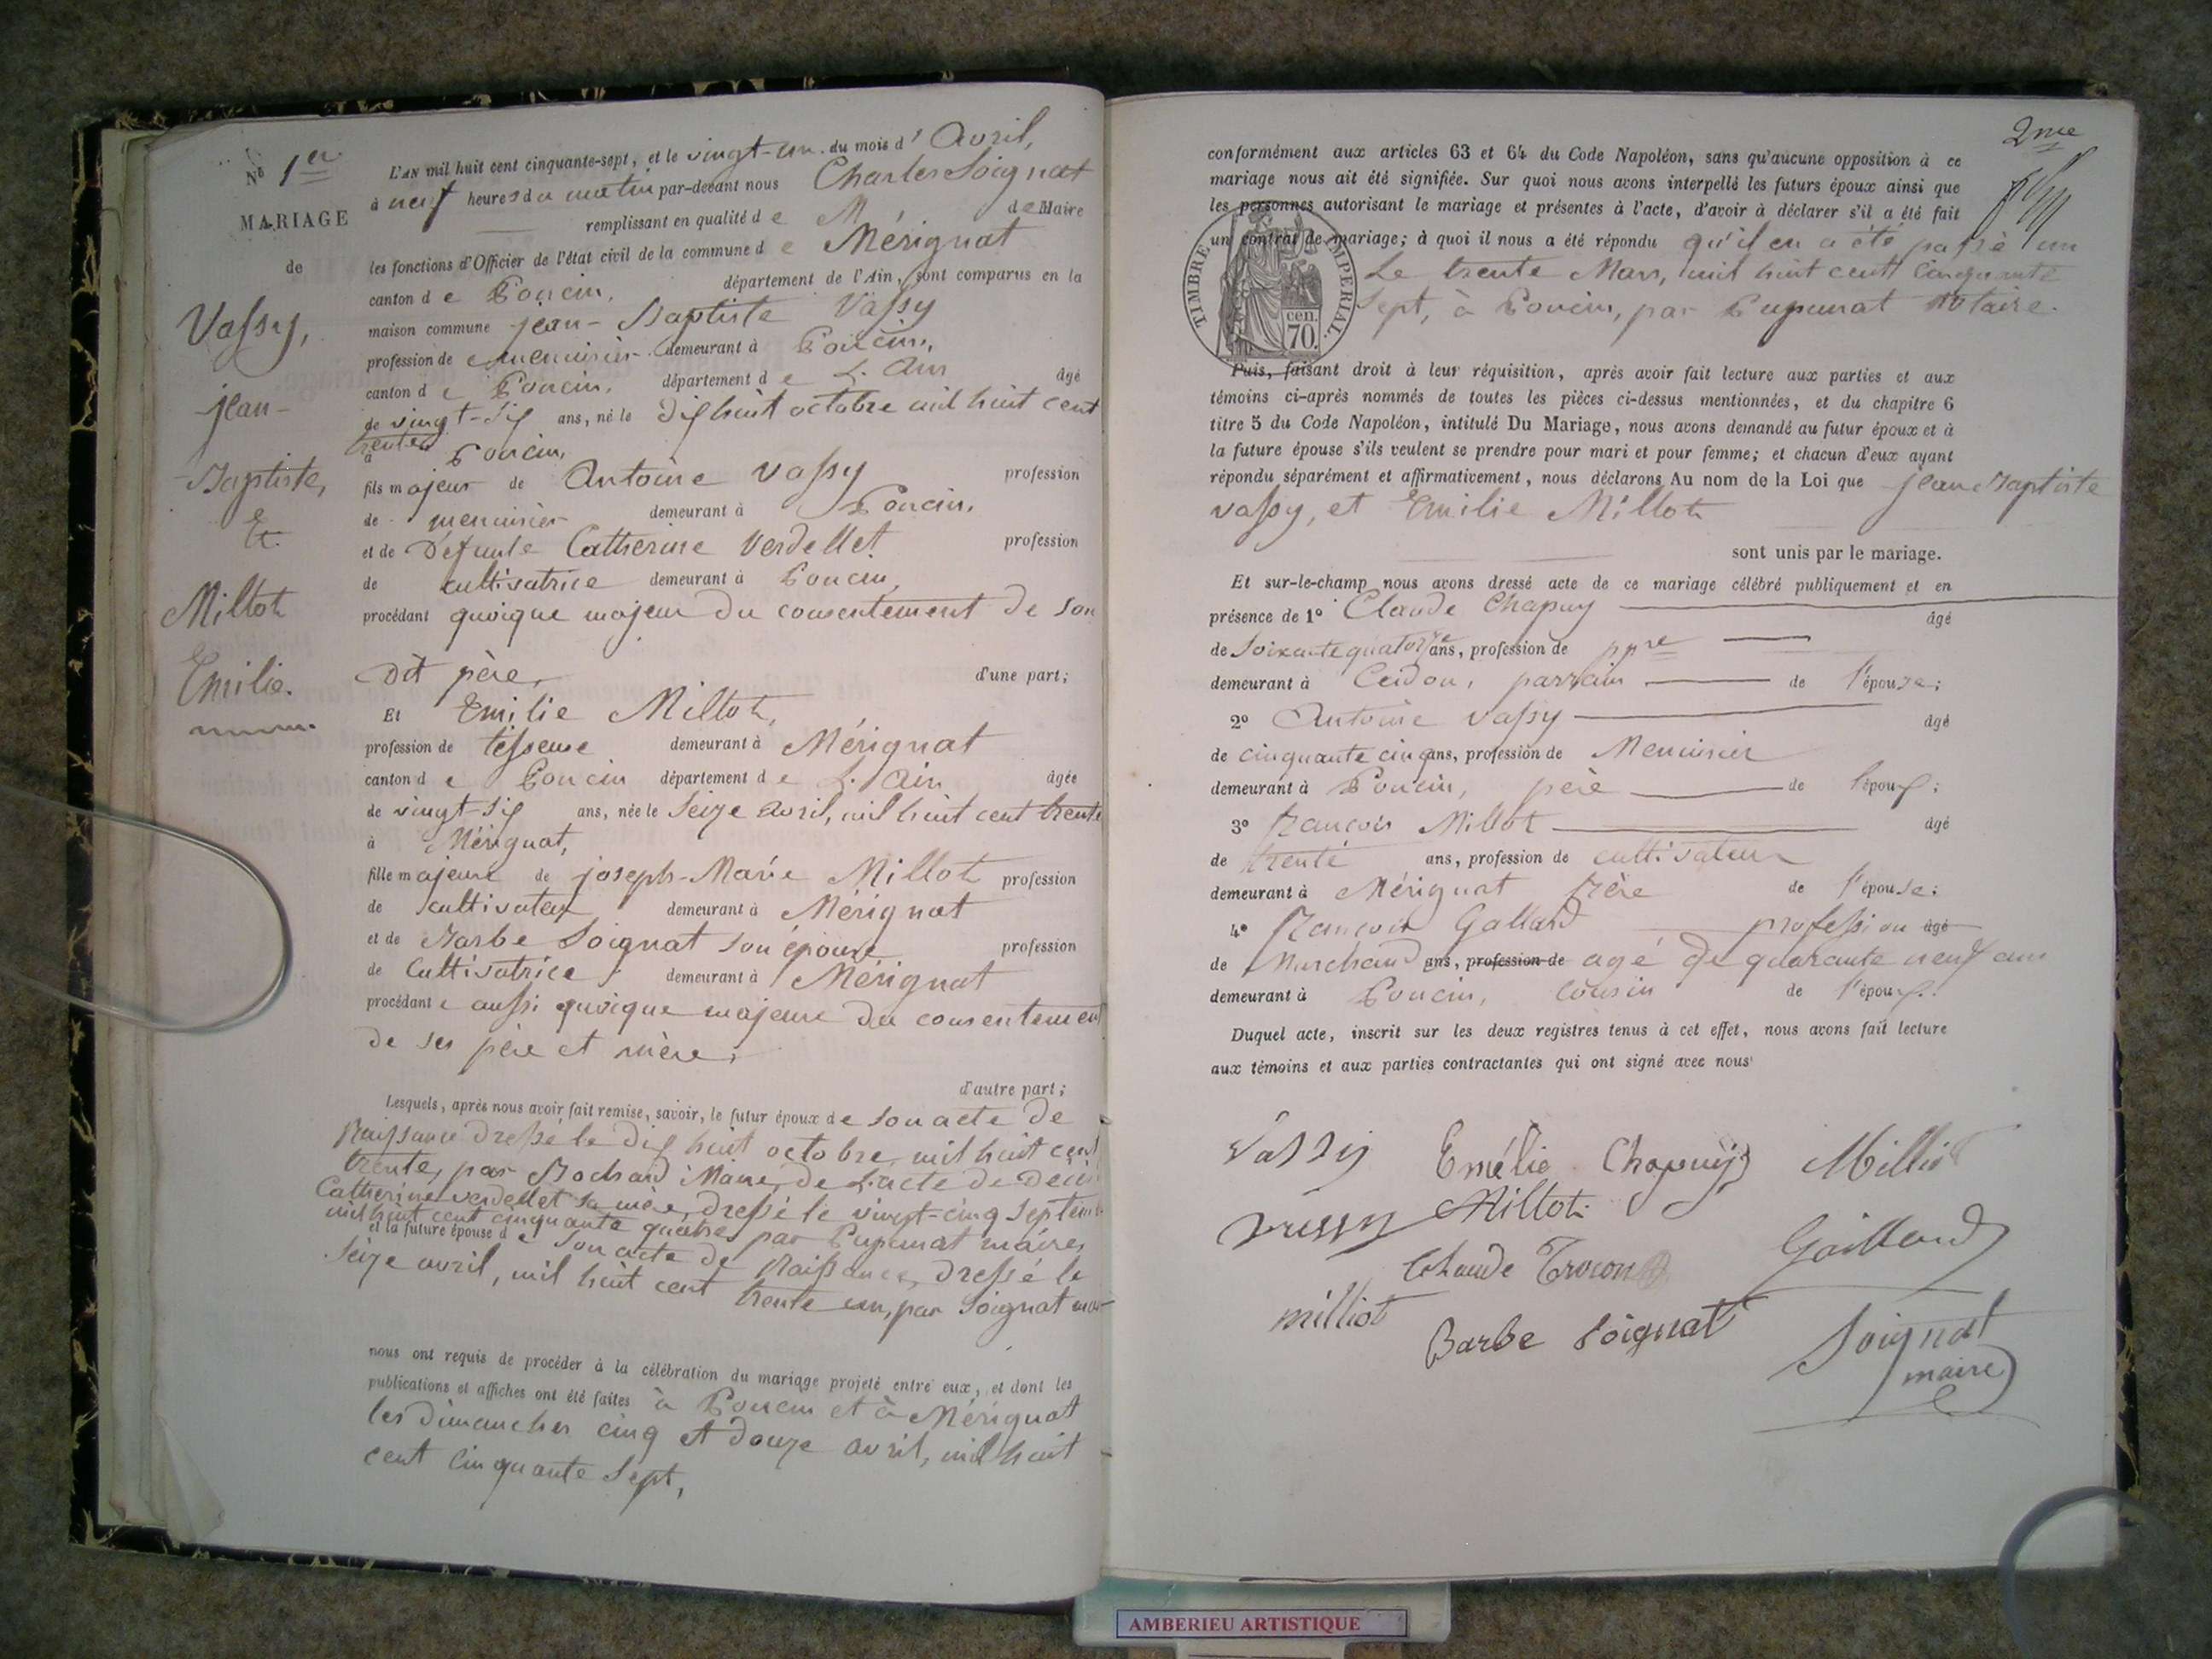 No 1er
MARIAGE
de
Vassy,
jean-
-Baptiste,
Et
Millot
Emilie.
L'AN mil huit cent cinquante-sept, et le vingt-un du mois d' Avril,
à neuf heures du matin par-devant nous Charles Soignat
remplissant en qualité de M de Maire
les fonctions d'Officier de l'état civil de la commune de Mérignat
canton de Poncin, département de l'Ain, sont comparus en la
maison commune jean-Baptiste Vassy
profession de menuisier demeurant à Poncin,
canton de Poncin, département de L'Ain âgé
de vingt-six ans, né le dix huit octobre mil huit cent
trente,
à Poncin,
fils majeur de Antoine Vassy profession
de menuisier demeurant à Poncin,
et de Défunte Catherine Verdellet profession
de cultivatrice demeurant à Poncin,
procédant quoique majeur du consentement de son
dit père, d'une part;
Et Emilie Millot,
profession de tisseuse demeurant à Mérignat
canton de Poncin département de L'Ain âgée
de vingt-six ans, née le seize avril, mil huit cent trente
à Mérignat,
fille majeure de joseph-Marie Millot profession
de cultivateur demeurant à Mérignat
et de Barbe Soignat son épouse profession
de Cultivatrice, demeurant à Mérignat
procédante aussi quoique majeure du consentement
de ses père et mère,
d'autre part;
Lesquels, après nous avoir fait remise, savoir, le futur époux de son acte de
Naissance dressé le dix huit octobre mil huit cent
trente, par Bochard Maire, de L'acte de décès
Catherine Verdellet sa mère, dressé le vingt-cinq Septembre
mil huit cent cinquante quatre par Pupunat maire,
et la future épouse de son acte de Naissance, dressé le
Seize avril, mil huit cent trente un, par Soignat
nous ont requis de procéder à la célébration du mariage projeté entre eux, et dont les
publications et affiches ont été faites à Poncin et à Mérignat
les dimanches cinq et douze avril, mil huit
cent cinquante Sept,
2me
conformément aux articles 63 et 64 du Code Napoléon, sans qu'aucune opposition à ce
mariage nous ait été signifiée. Sur quoi nous avons interpellé les futurs époux ainsi que
les personnes autorisant le mariage et présentes à l'acte, d'avoir à déclarer s'il a été fait
un contrat de mariage; à quoi il nous a été répondu qu'il en a été passé un
Le trente Mars, mil huit cent Cinquante
Sept, à Poncin, par Pupunat Notaire.
TIMBRE IMPERIAL.
cen.
70.
Puis, faisant droit à leur réquisition, après avoir fait lecture aux parties et aux
témoins ci-après nommés de toutes les pièces ci-dessus mentionnées, et du chapitre 6
titre 5 du Code Napoléon, intitulé Du Mariage, nous avons demandé au futur époux et à
la future épouse s'ils veulent se prendre pour mari et pour femme; et chacun d'eux ayant
répondu séparément et affirmativement, nous déclarons Au nom de la Loi que jean Baptiste
Vassy, et Emilie Millot
sont unis par le mariage.
Et sur-le-champ nous avons dressé acte de ce mariage célébré publiquement et en
présence de 1° Claude Chapuy âgé
de Soixante quatorze ans, profession de ppre
demeurant à Cerdon, parrain de l'épouse;
2° Antoine Vassy âgé
de cinquante cinq ans, profession de Menuisier
demeurant à Poncin, père de l'époux;
3° françois Millot âgé
de trente ans, profession de cultivateur
demeurant à Mérignat frère de l'épouse;
4° françois Galland profession âgé
de Marchand ans, profession de agé de quarante neuf ans
demeurant à Poncin, cousin de l'époux.
Duquel acte, inscrit sur les deux registres tenus à cet effet, nous avons fait lecture
aux témoins et aux parties contractantes qui ont signé avec nous
Vassy Emélie Chapuys Milliot
Millot
Gaillard
milliot
Barbe Soignat
Soignat
maire
AMBERIEU ARTISTIQUE